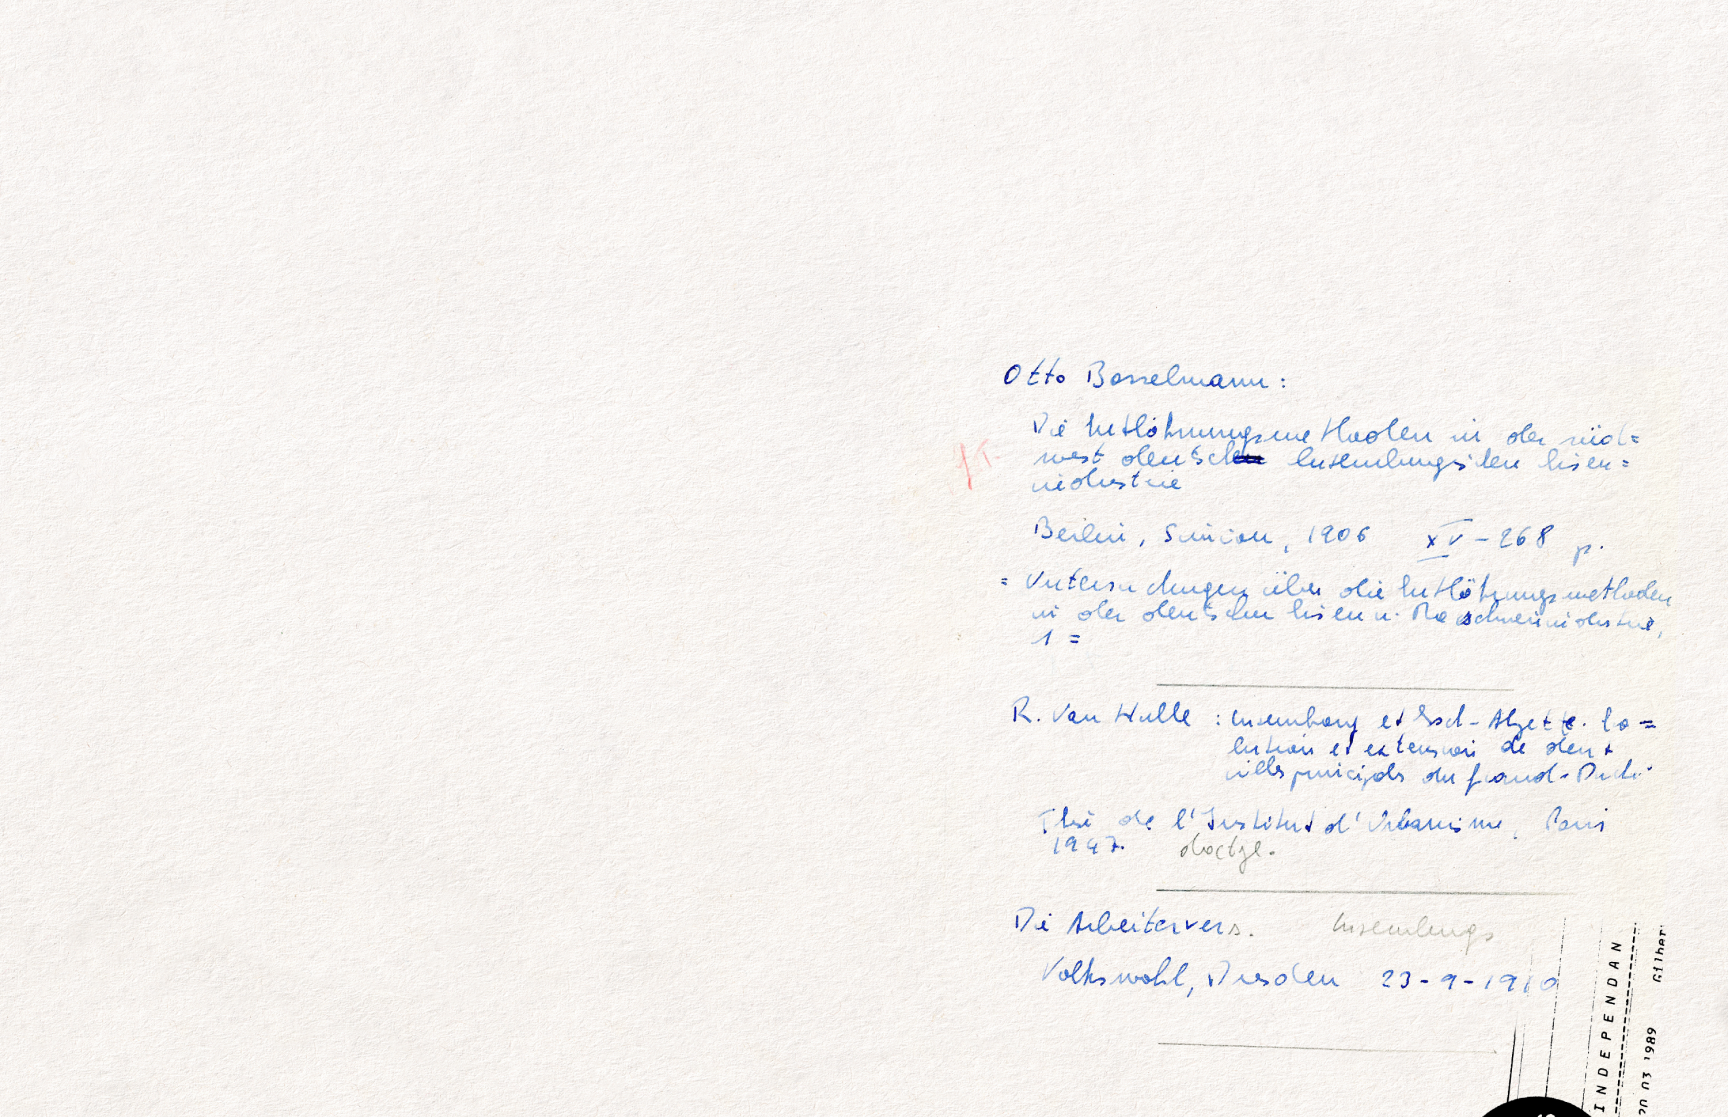 Otto Bosselmann :
Die Entlöhnungsmethoden in der süd=
west deutsch luxemburgischen Eisen=
industrie
Berlin, Simion, 1906 XV - 268 p.
= Untersuchungen über die Entlöhnungsmethoden
in der deutschen Eisen u. Maschinenindustrie,
1 =
R. Van Hulle : Luxembourg et Esch-Alzette. Evo=
lution et extension de deux
villes principales du Grand-Duché
Thèse de l'Institut d'Urbanisme, Paris
1947. dactyl.
Die Arbeitervers. Luxemburgs
Volkswohl, Dresden 23-9-1910
INDEPENDAN
03 1989 Gilber